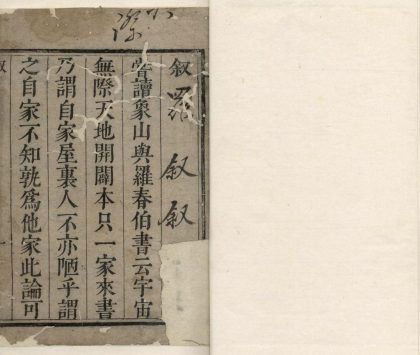 叙
羅叙叙
嘗讀象山與羅春伯書云宇宙
無際天地開闢本只一家來書
乃謂自家屋裏人不亦陋乎謂
之自家不知孰爲他家此論可
叙
一